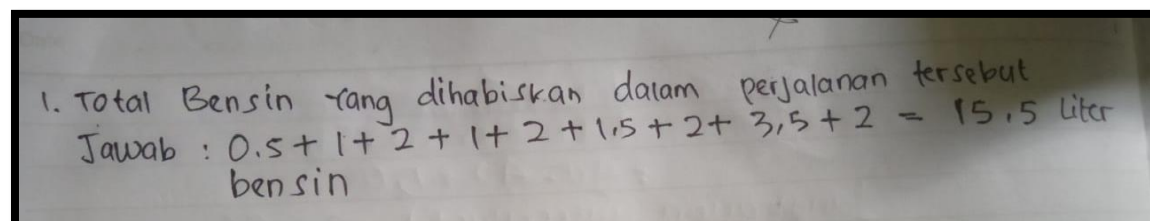 1. Total Bensin Yang dihabiskan dalam perjalanan tersebut
Jawab : 0.5 + 1 + 2 + 1 + 2 + 1.5 + 2 + 3,5 + 2 = 15,5 Liter
bensin